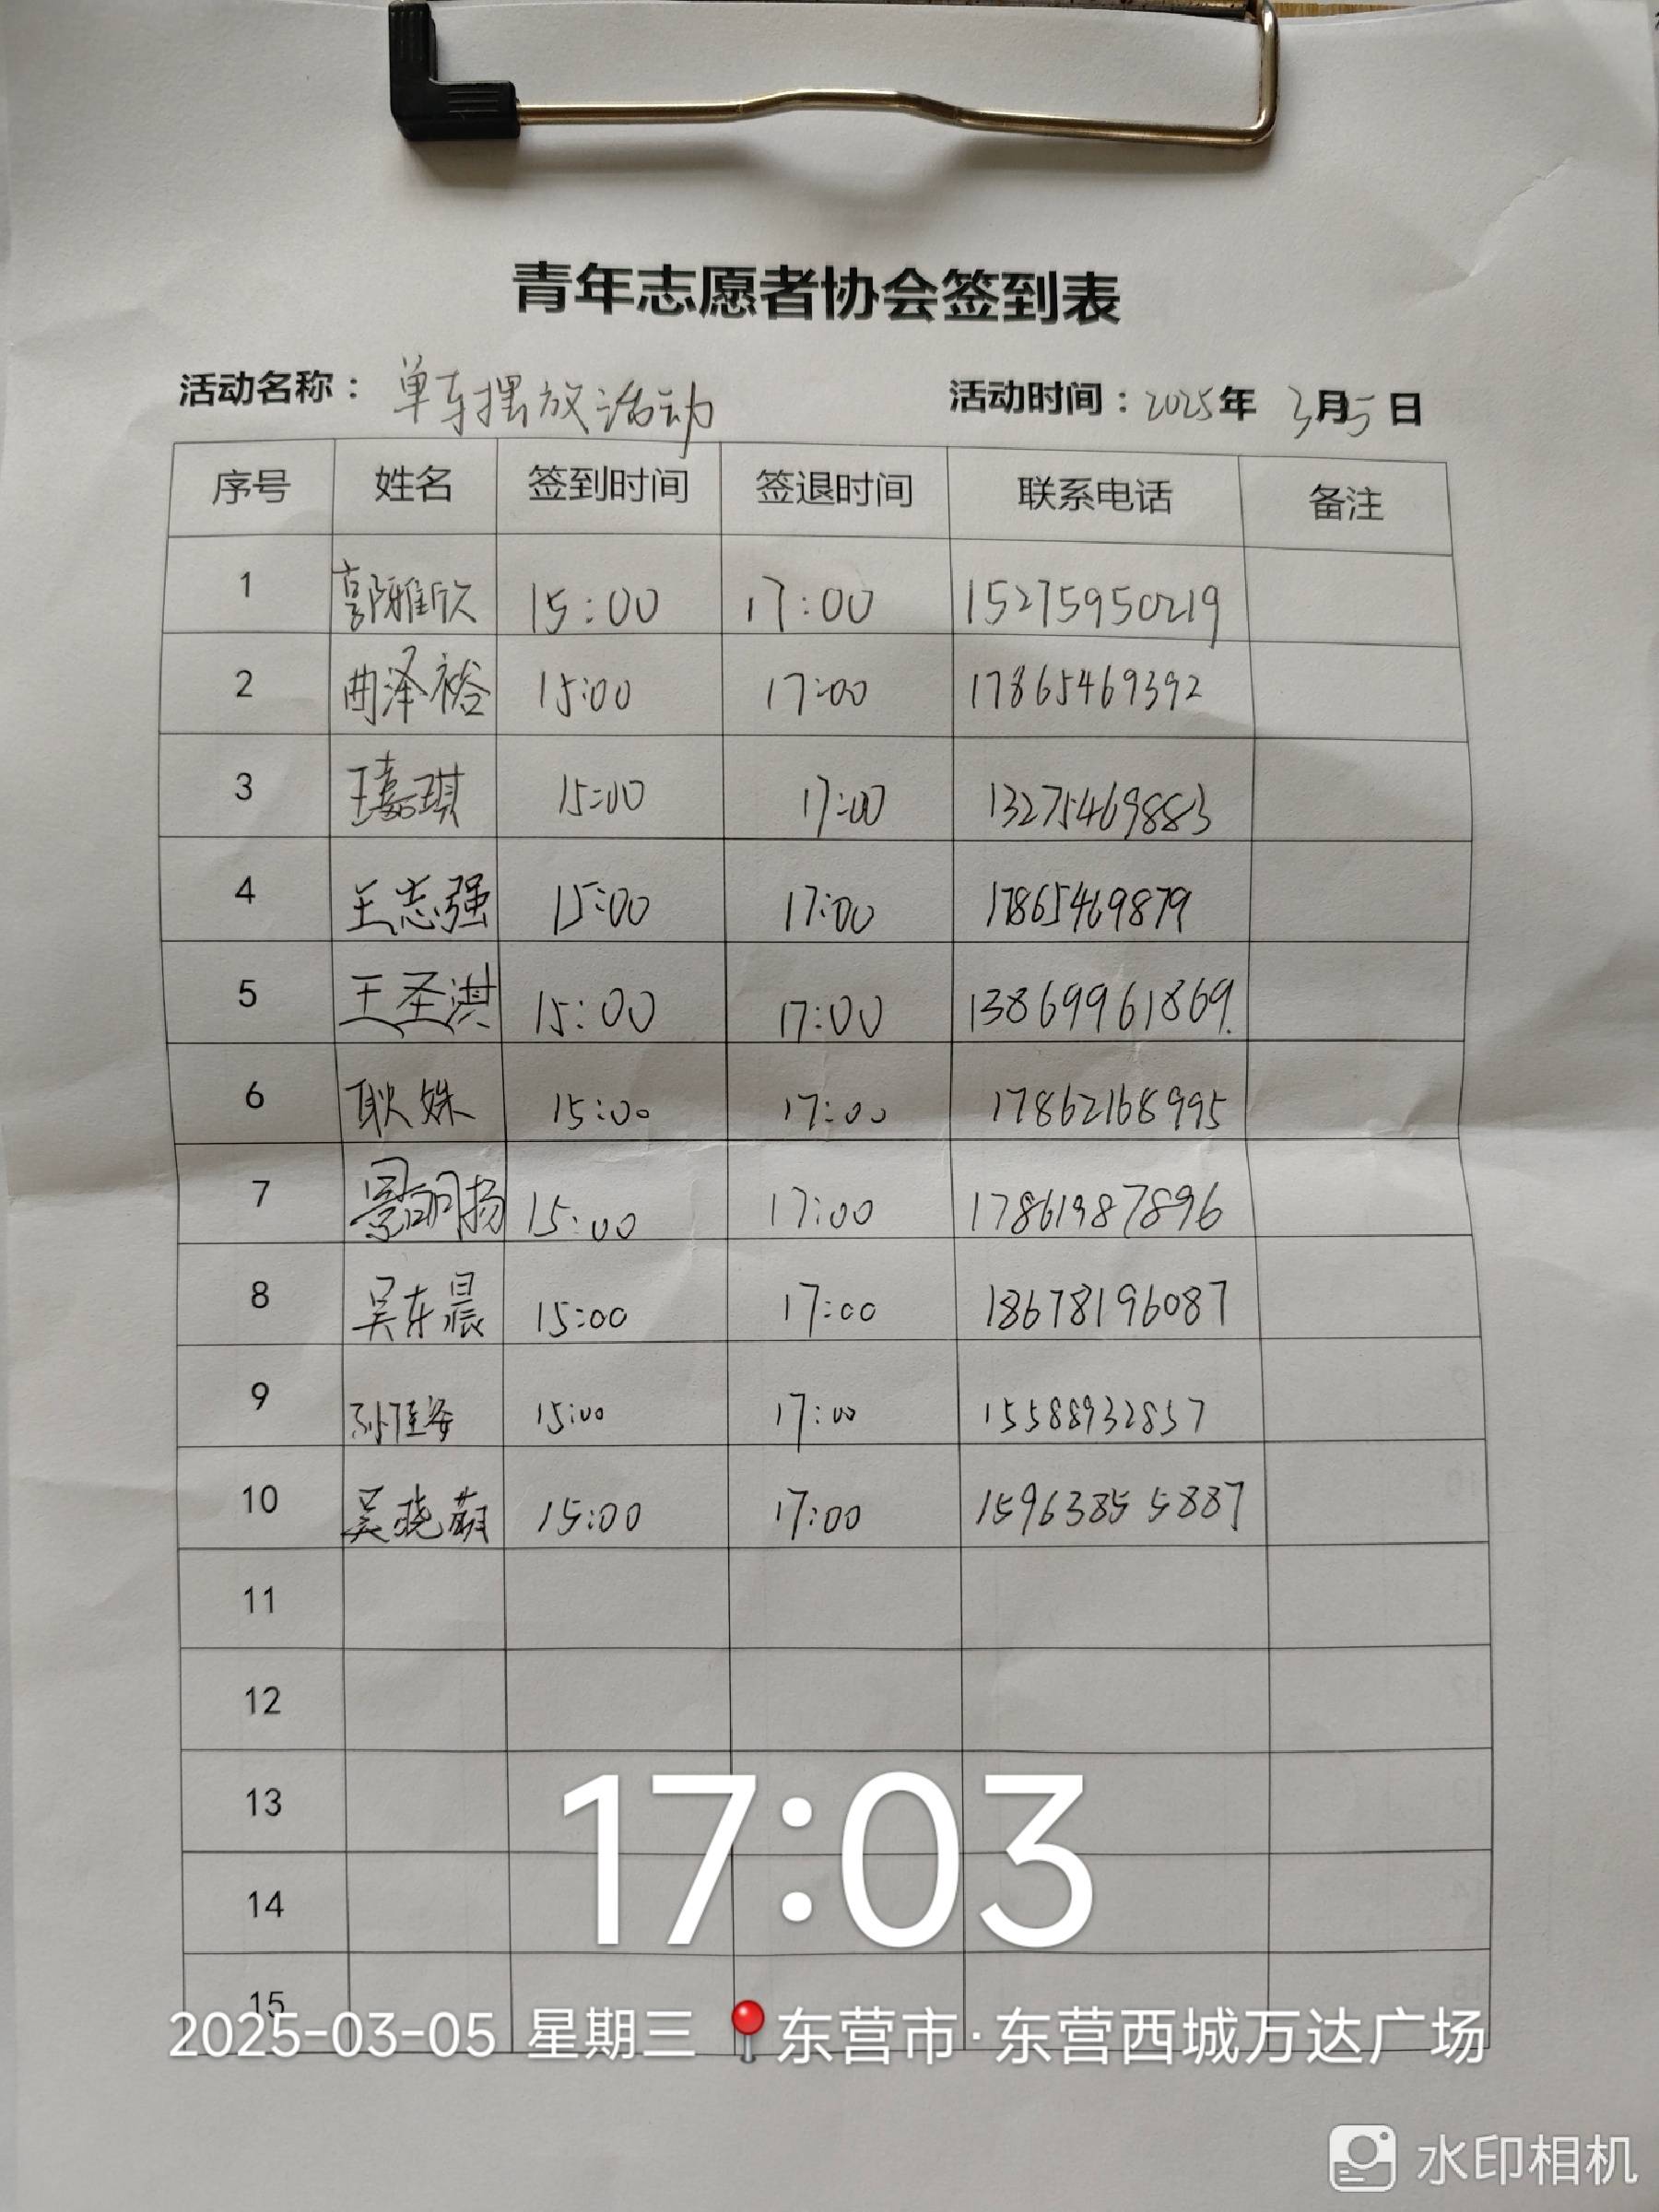 青年志愿者协会签到表
活动名称： 单车摆放活动 活动时间：2025年 3月5日
序号 姓名 签到时间 签退时间 联系电话 备注
1 郭雅欣 15:00 17:00 15275950219
2 曲泽裕 15:00 17:00 17865469392
3 王嘉琪 15:00 17:00 13275469883
4 王志强 15:00 17:00 17865469879
5 王圣淇 15:00 17:00 13869961869.
6 耿姝 15:00 17:00 17862168995
7 15:00 17:00 17861987896
8 吴东晨 15:00 17:00 18678196087
9 孙佳安 15:00 17:00 15588932857
10 吴晓萌 15:00 17:00 15963855887
11
12
13
14
15
17:03
2025-03-05 星期三 东营市·东营西城万达广场
水印相机